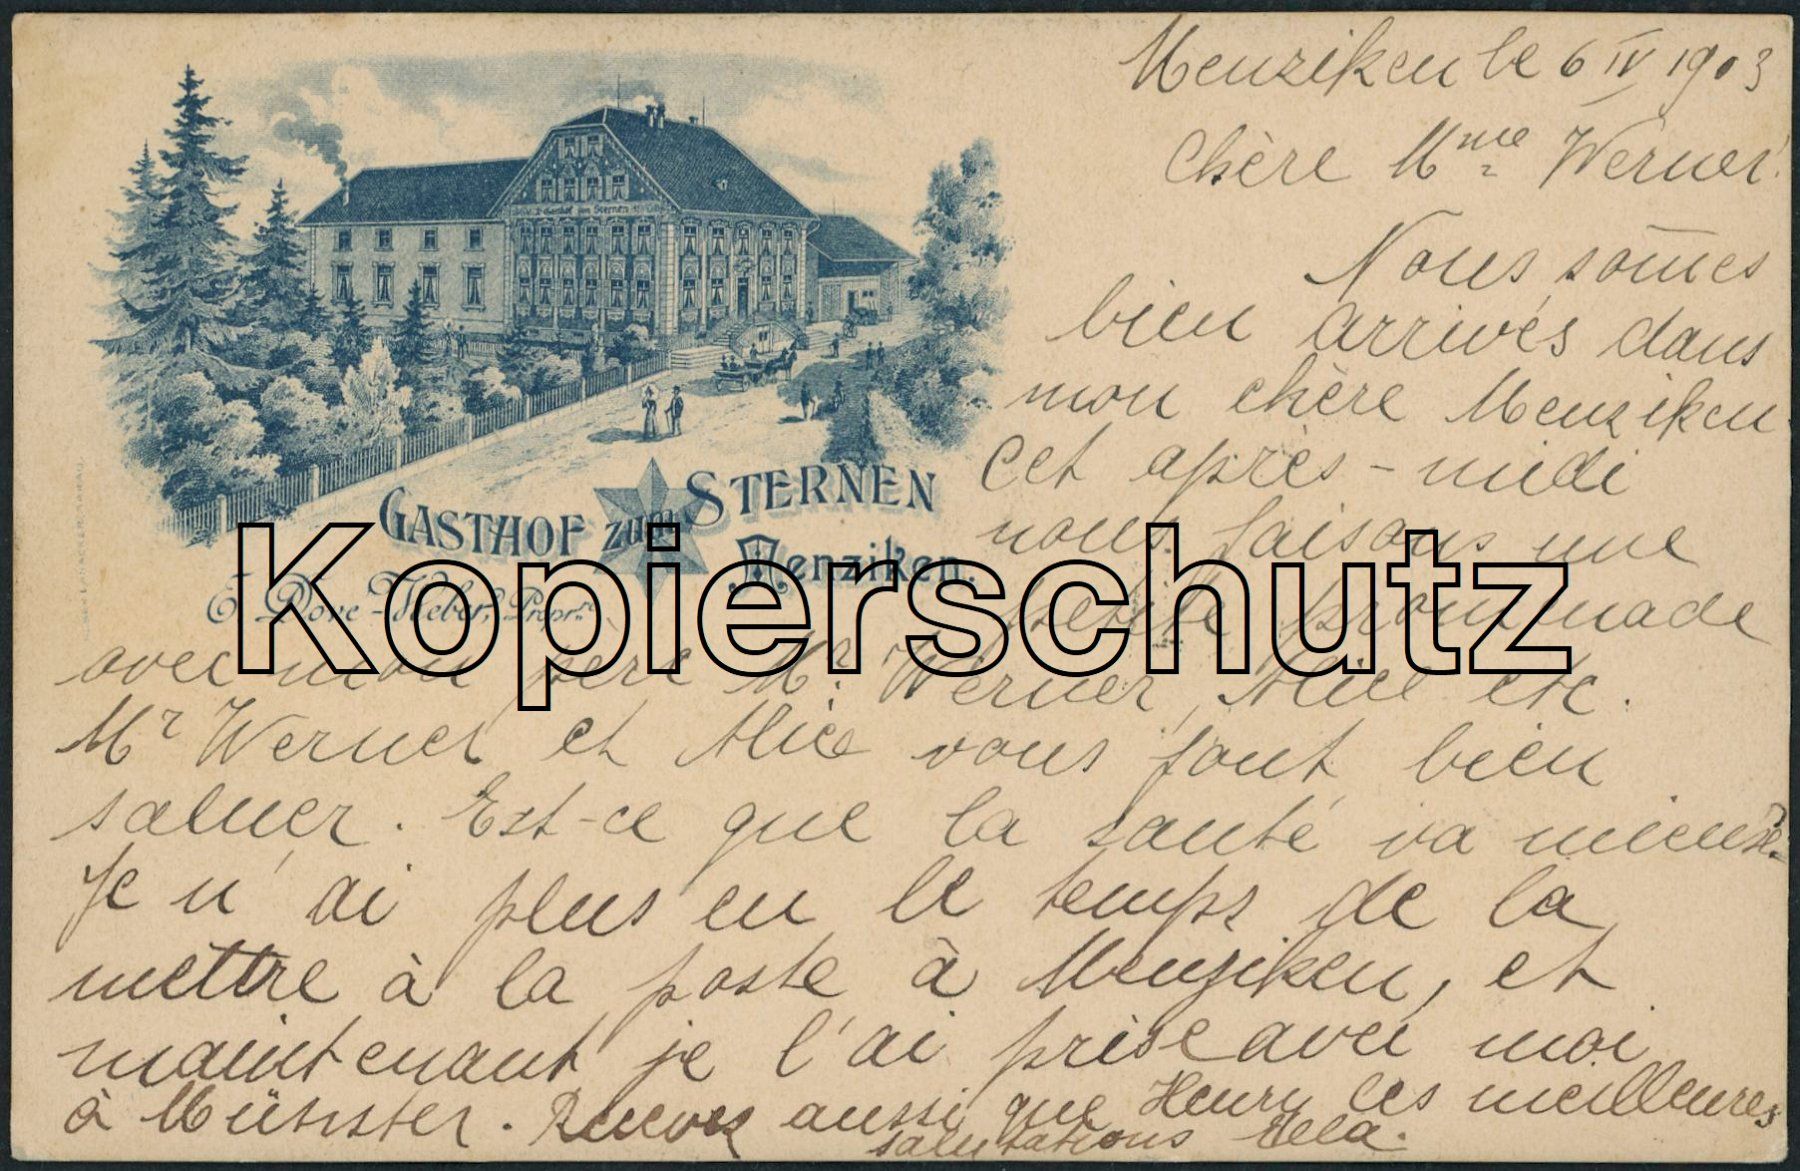 Menziken le 6 IV 1903
Chère Mme Werner!
Nous som̄es
bien arrivés dans
mon chère Menziken.
Cet après-midi
nous faisons une
petite promenade
avec mon père Mr. Werner, Alice etc.
Mr Werner et Alice vous font bien
saluer. Est-ce que la santé va mieux?
Je n'ai plus eu le temps de la
mettre à la poste à Menziken, et
maintenant je l'ai prise avec moi
à Münster. Recevez aussi que Henry les meilleures
salutations Ella.
GASTHOF zum STERNEN
Menziken.
Dove-Weber, Propr.
Gasthof zum Sternen
Kopierschutz